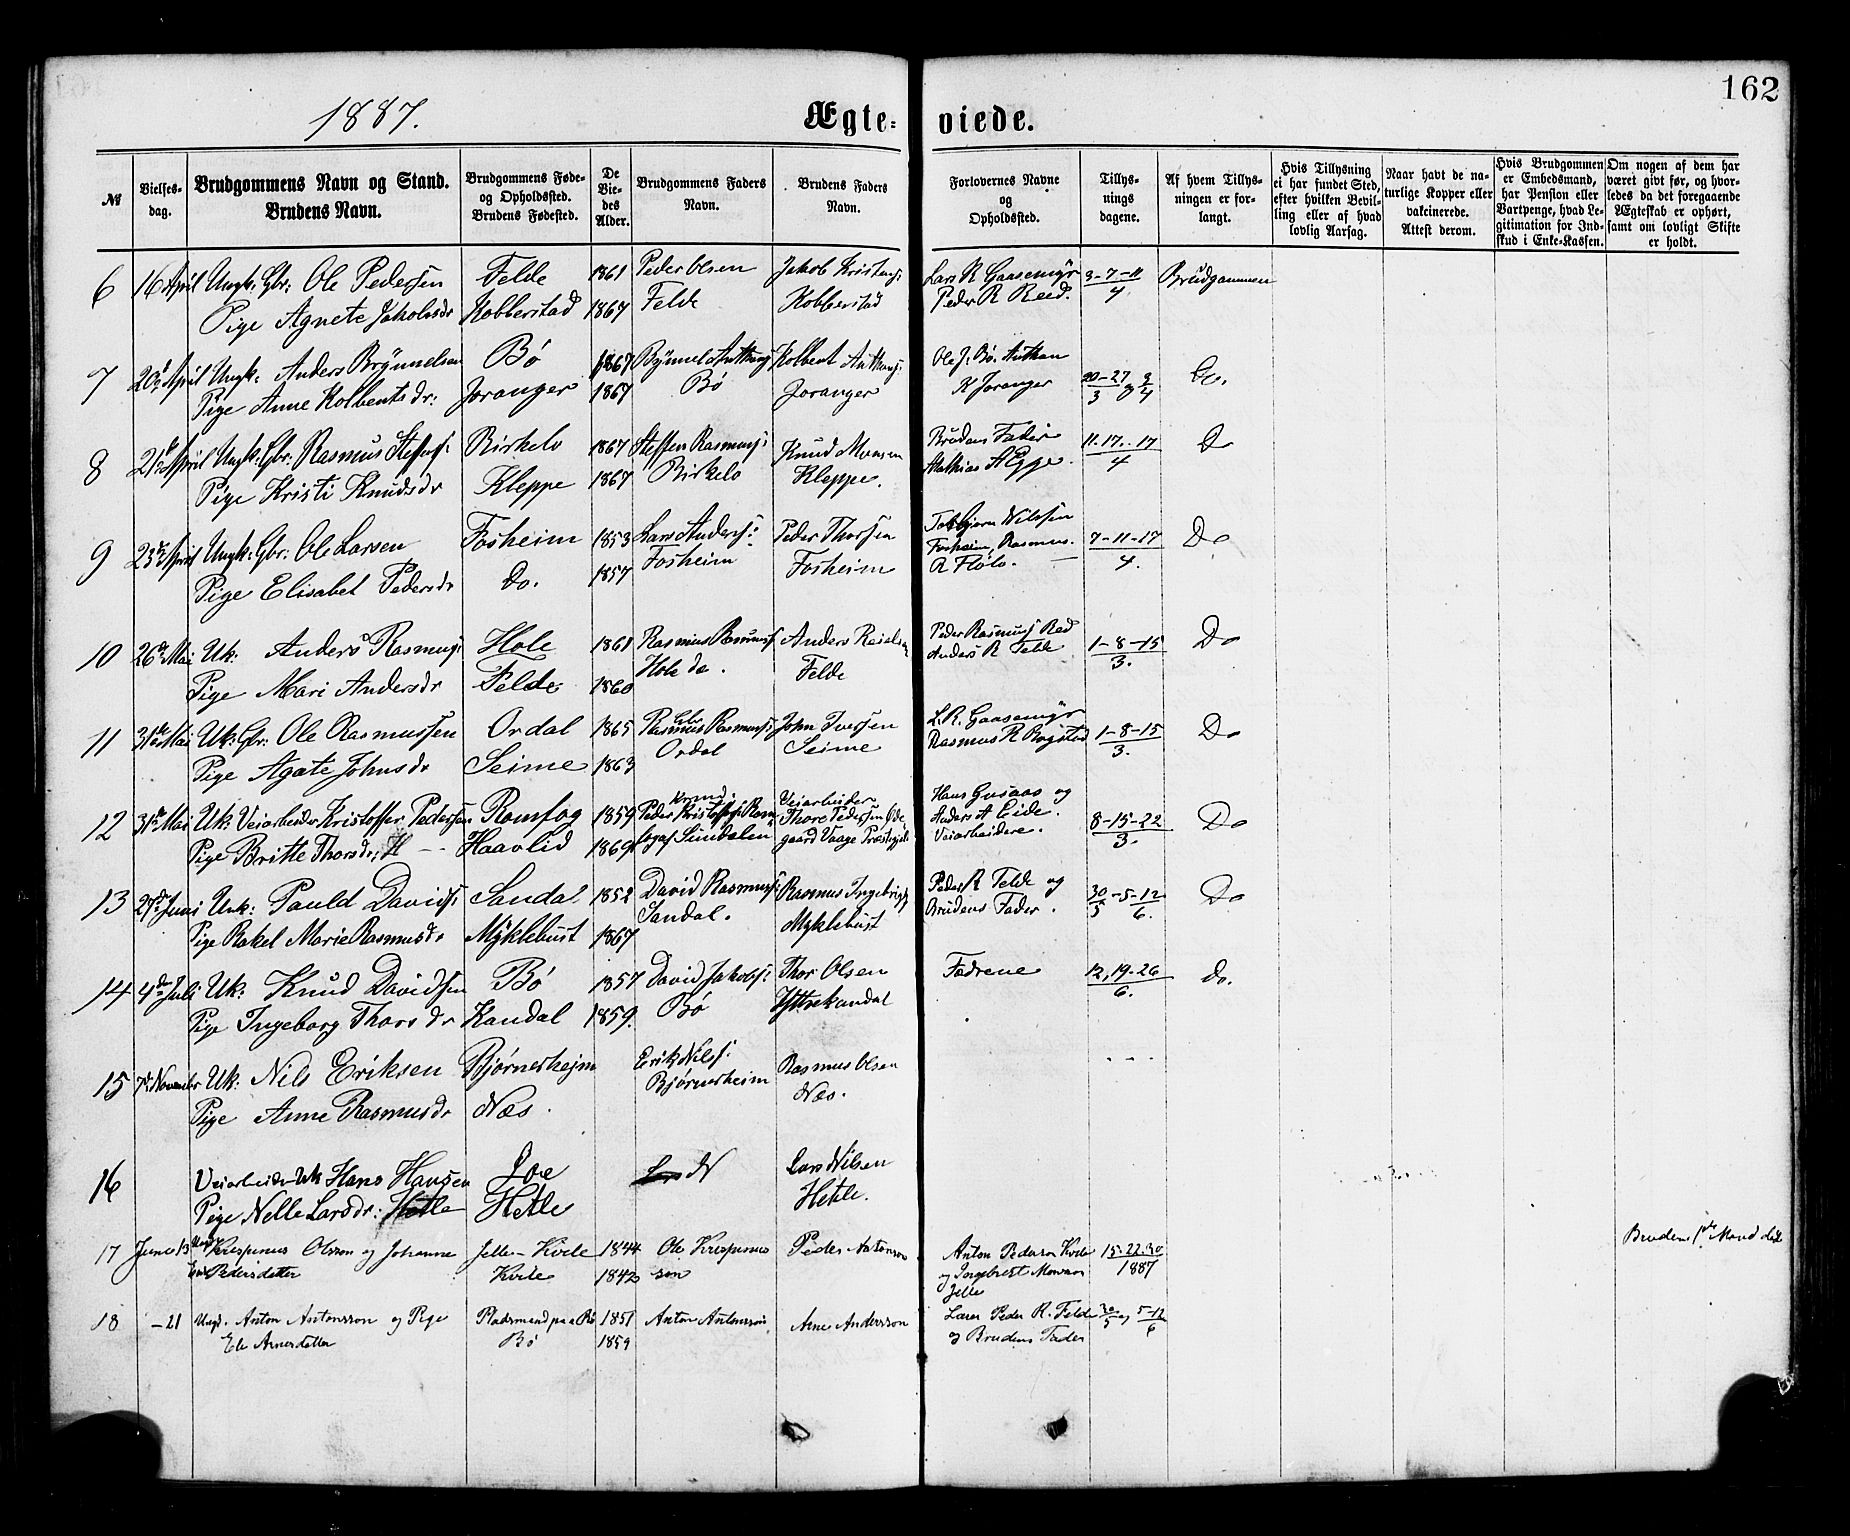 162
1887.
Ægte-
viede.
№
Vielses-
dag.
Brudgommens Navn og Stand.
Brudens Navn.
Brudgommens Føde-
og Opholdssted.
Brudens Fødested.
De
Vie-
des
Alder.
Brudgommens Faders
Navn.
Brudens Faders
Navn.
Forlovernes Navne
og
Opholdssted.
Tillys-
nings
dagene.
Af hvem Tillys-
ningen er for-
langt.
Hvis Tillysning
ei har fundet Sted,
efter hvilken Bevil-
ling eller af hvad
lovlig Aarsag.
Naar havt de na-
turlige Kopper eller
vakcinerede.
Attest derom.
Hvis Brudgommen
er Embedsmand,
har Pension eller
Vartpenge, hvad Le-
gitimation for Ind-
skud i Enke-Kassen.
Om nogen af dem har
været givt før, og hvor-
ledes da det foregaaende
Ægteskab er ophørt,
samt om lovligt Skifte
er holdt.
6 16 April Ungk: Gbr: Ole Pedersen Felde 1861 Peder Olsen Jakob Kristens: Lars R Gaasemyr 3-7-11 Brudgommen
Pige Agnete Jakobsdr Kobberstad 1867 Felde Kobberstad Peder R Reed. 4.
7 20de April Ungk: Anders Brynnelsen Bø 1867 Brynnel Anthuns: Kolbent Anthuns: Ole J. Bø. Anthun 20-27 og 3 Do.
Pige Anne Kolbentsdr: Joranger 1867 Bø Joranger K Joranger 3 4
8 21de April Ungk: Gbr: Rasmus Stefens: Birkelo 1867 Steffen Rasmuss: Knud Monsen Brudens Fader 11.17.-17 Do
Pige Kristi Knudsdr Kleppe 1867 Birkelo Kleppe. Mathias A Egge. 4
9 23de April Ungk: Gbr: Ole Larsen Fosheim 1853 Lars Anders: Peder Thorsen Torbjørn Nilssen 7-11-17 Do
Pige Elisabet Pedersdr Do. 1857 Fosheim Fosheim Fosheim, Rasmus. 4.
R Flølo.
10 26de Mai Uk: Anders Rasmuss: Hole 1861 Rasmus Rasmuss: Anders Reiels Peder Rasmuss Red 1-8-15 Do
Pige Mari Andersdr Felde 1860 Hole do. Felde Anders R Felde 3.
11 31de Mai Uk: Gbr: Ole Rasmussen Ordal 1865 Gbr Rasmus Rasmuss: John Iversen L. R. Gaasemyr 1-8-15 Do
Pige Agate Johnsdr Seime 1863 Ordal Seime Rasmus R Rogstad 3.
12 31de Mai Uk: Veiarbeider Kristoffer Pedersen Romfog 1859 Peder Kristoffs: Rom Veiarbeider Hans Gusaas og 8-15-22 Do
Pige Britte Thorsdr; H -- Haavlid 1869 fogaf Sundalen Thore Pedersen Øde Anders A Eide. 3.
gaard Vaage Præstegjeld Veiarbeidere.
13 29de Juni Uk: Pauld Davids: Sandal 1852 David Rasmuss: Rasmus Ingebrigts Peder R Felde og 30-5-12 Do
Pige Rakel Marie Rasmusdr Myklebust 1867 Sandal. Myklebust Brudens Fader. 5 6.
14 4de Juli Uk: Knud Davidsen Bø 1857 David Jakobs: Thor Olsen Fædrene 12, 19-26 do.
Pige Ingeborg Thorsdr Kandal 1859. Bø Ytrekandal 6.
15 7de November Uk: Nils Eriksen Bjørnesheim Erik Nilss: Rasmus Olsen
Pige Anne Rasmusdr Næs. Bjørnesheim Næs.
16 Veiarbeider Uk Hans Hansen Loe N Lars Nilsen
Pige Nelle Larsdr: Hetle Hetle Hetle.
17 June 13 Ungk Krispinus Olsson og Johanne Jelle-Kvile 1844 Ole Krispinus Peder Antonson Anton Pederson Kvile 15.22.30 Brudens 1ste Mand død
Enke Pedersdatter Kvile 1842 son og Ingebrigt Monsson 1887
Jelle
18 -21 Ungk. Anton Antonsson og Pige Pladsmand paa Bø 1851 Anton Antonsson Arne Andersson Lærer Peder R. Felde 30 og 5-12
Eli Arnesdatter Bø 1859 og Brudens Fader 5 6